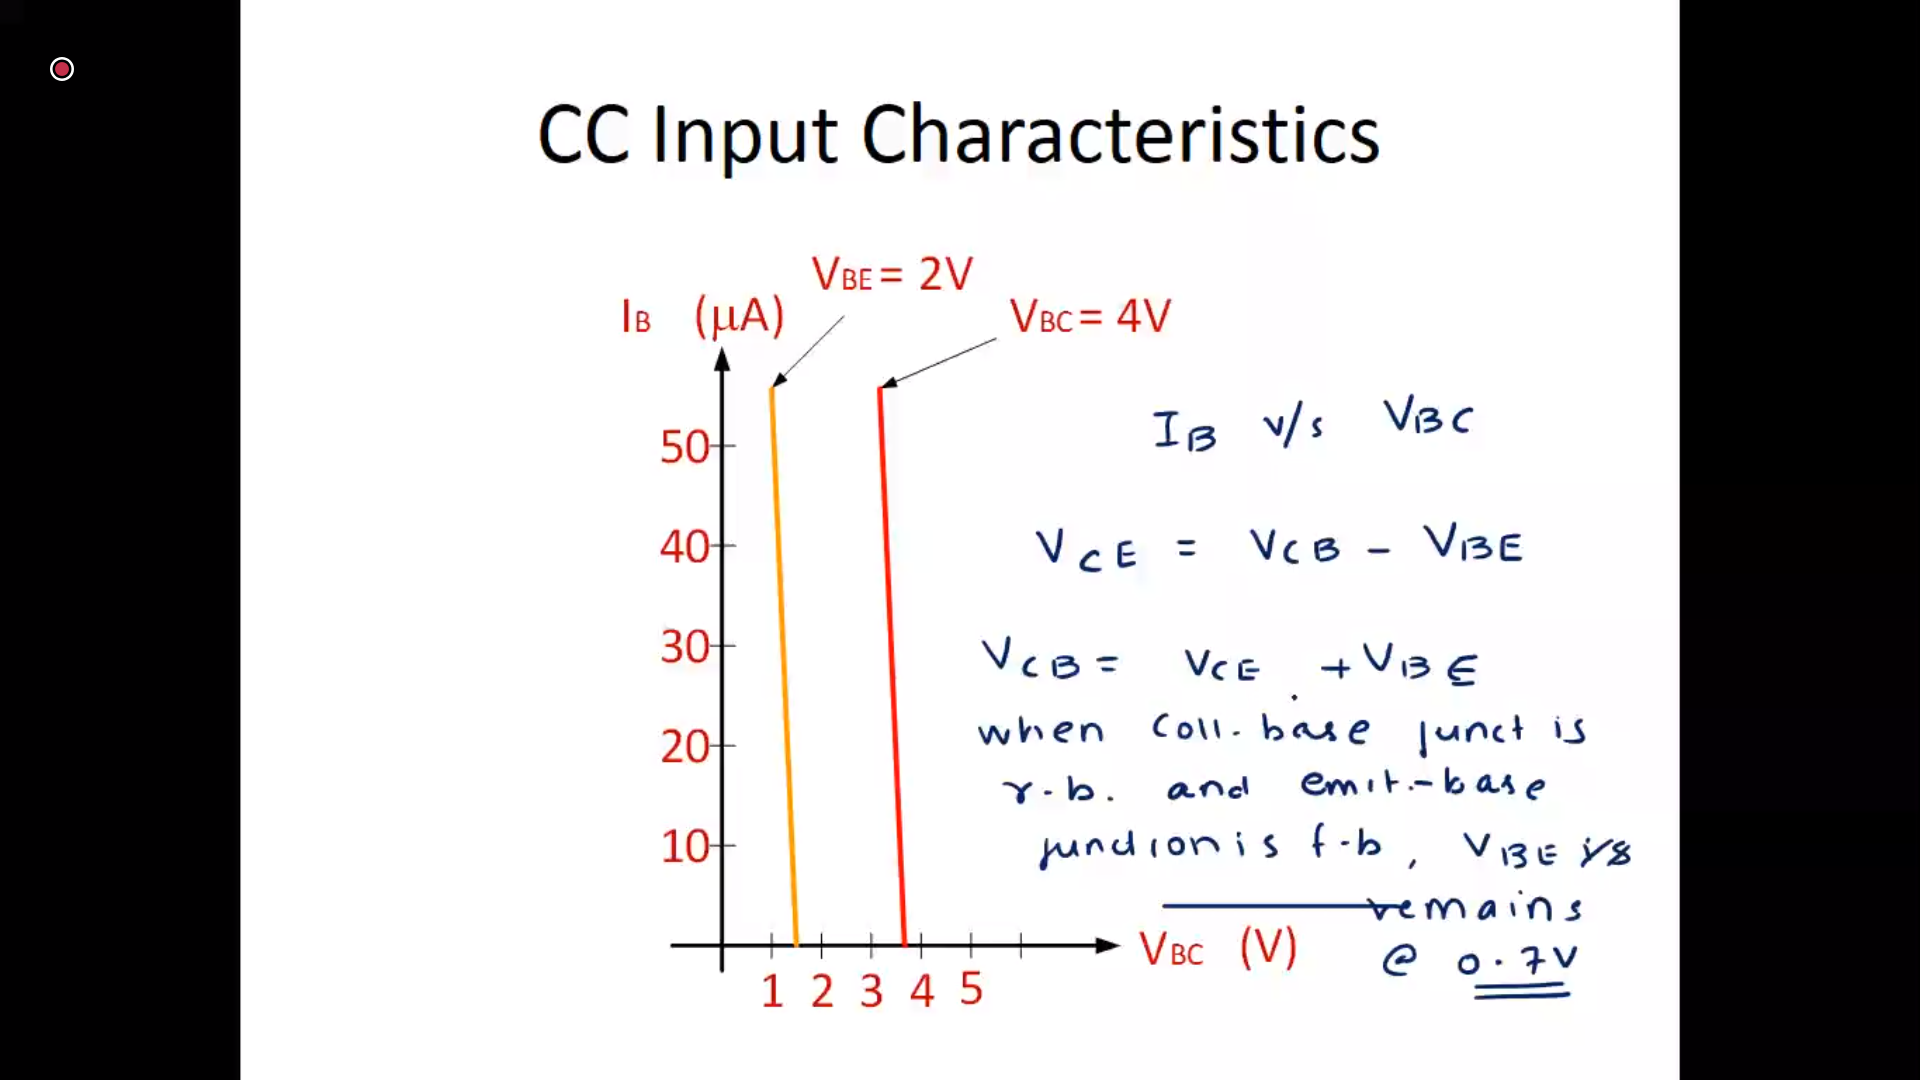 CC Input Characteristics
VBE = 2V
IB (μA)
VBC = 4V
50
40
30
20
10
1 2 3 4 5
VBC (V)
IB v/s VBC
VCE = VCB - VBE
VCB = VCE + VBE
when Coll. base junct is
r.b. and emit.-base
junction is f-b, VBE is
remains
@ 0.7V